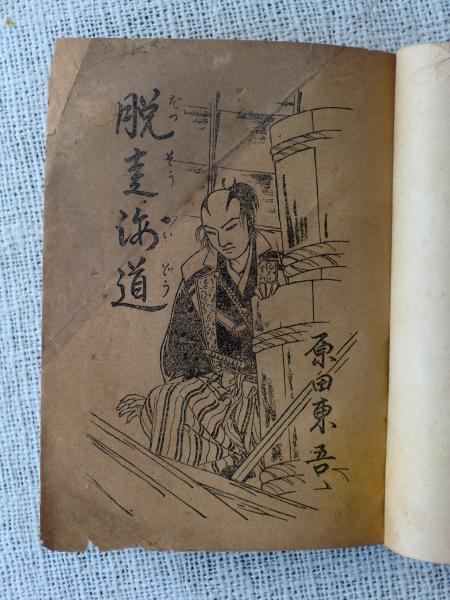 脱走海道
だっそうかいどう
原田東吾